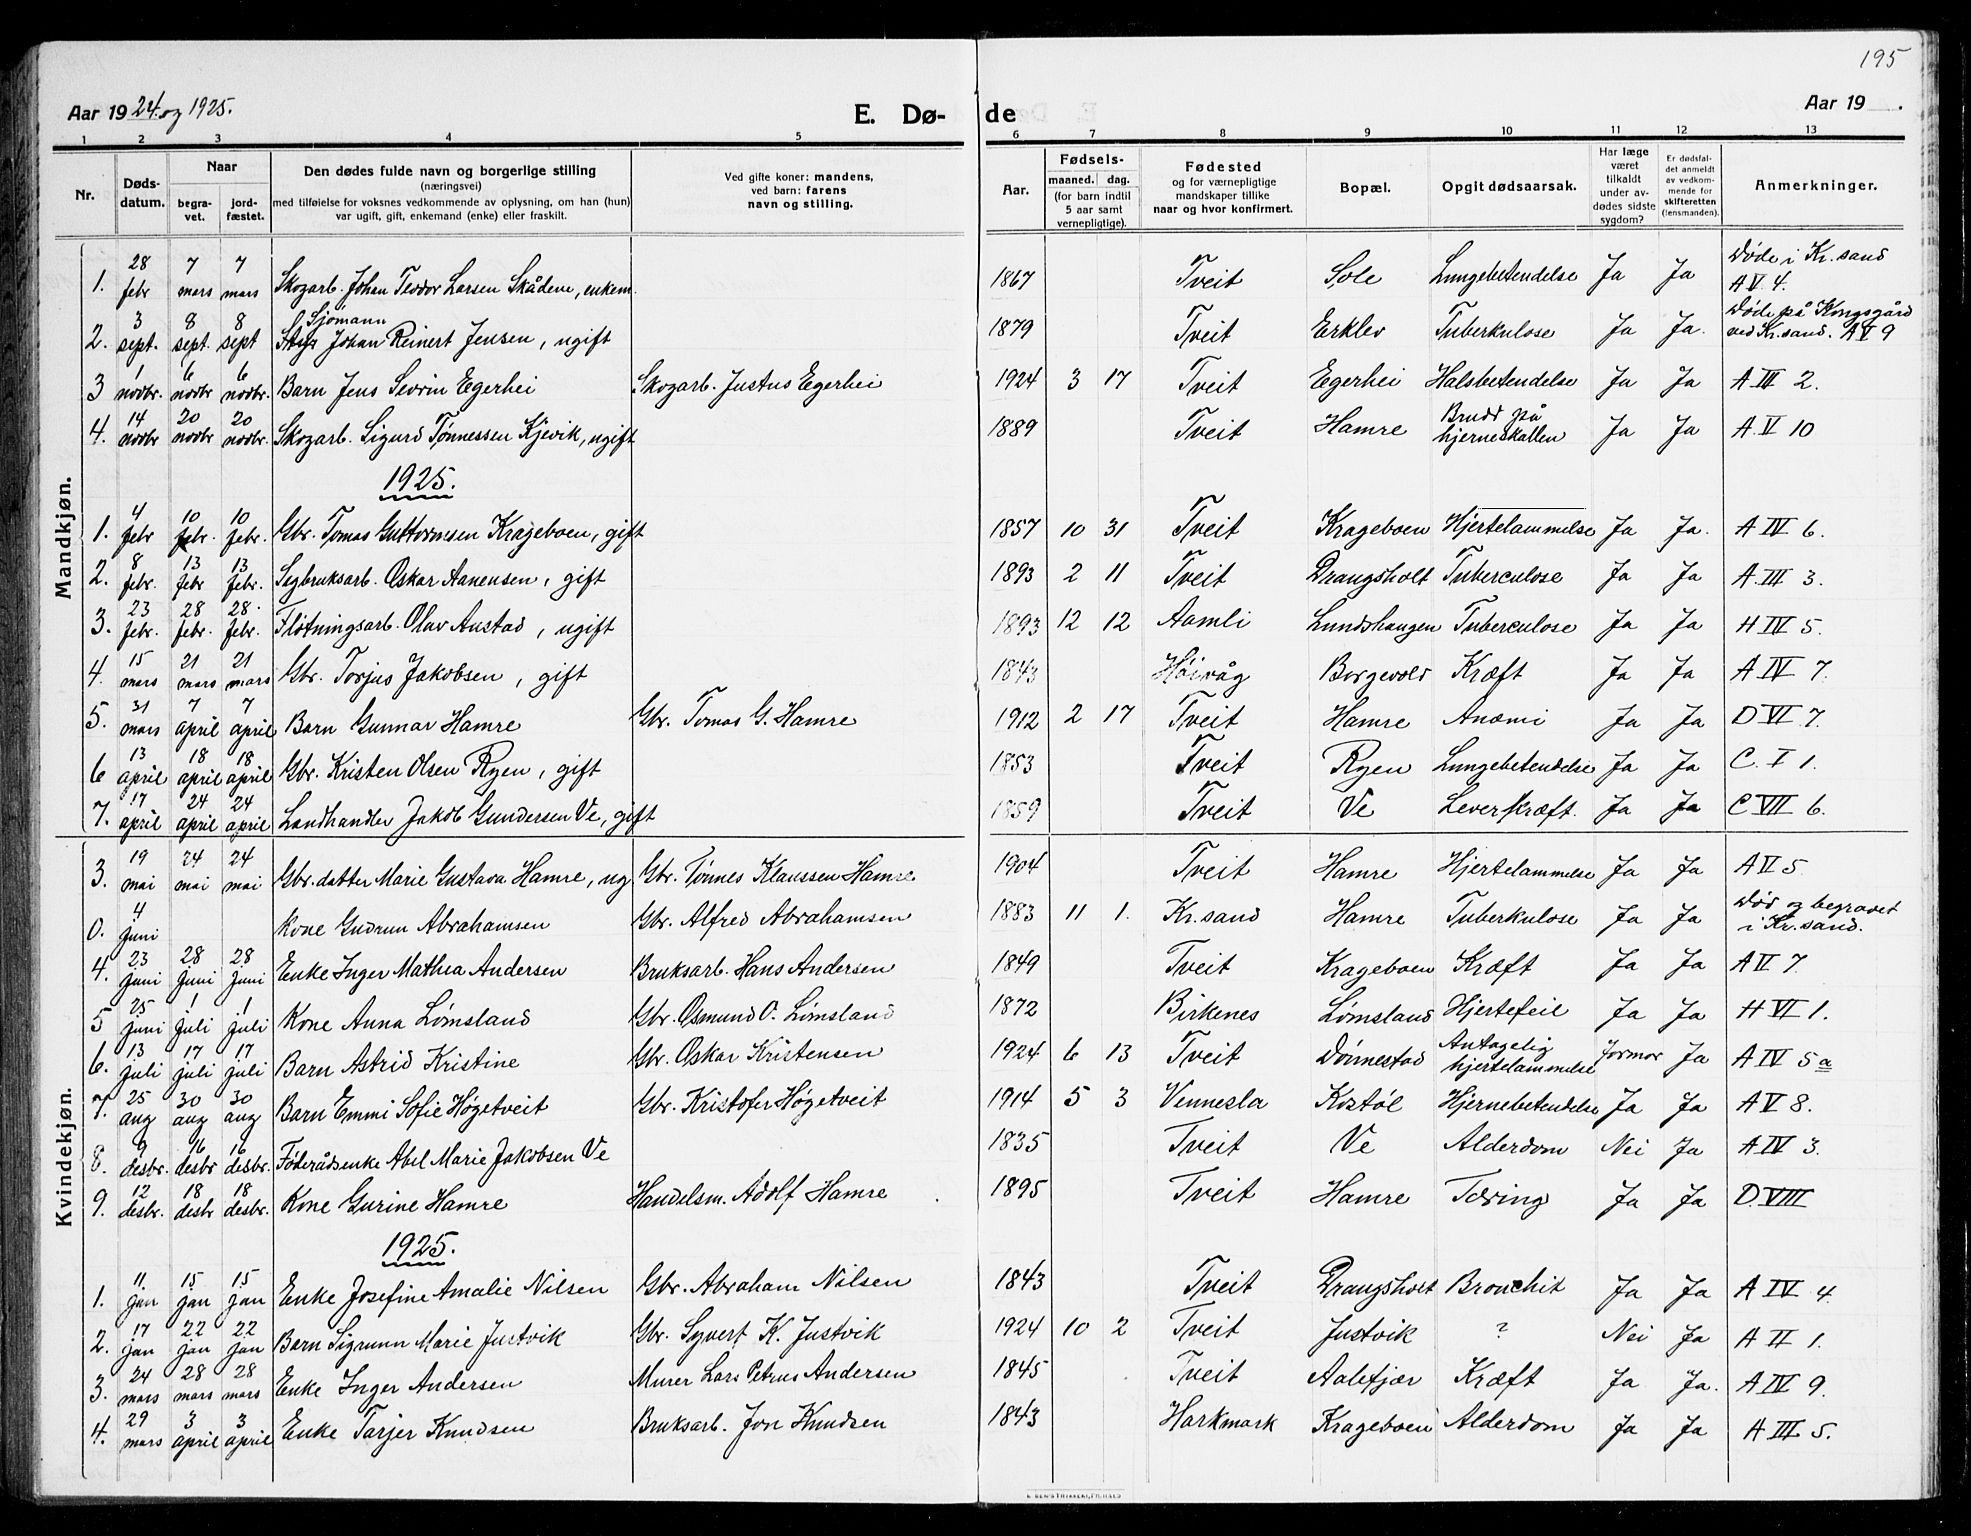 195
Aar 1924 og 1925.
E. Dø- de
Aar 19 .
1 2 3 4 5 6 7 8 9 10 11 12 13
Nr.
Døds-datum.
Naar
begra-vet.
jord-fæstet.
Den dødes fulde navn og borgerlige stilling
(næringsvei)
med tilføielse for voksnes vedkommende av oplysning, om han (hun)
var ugift, gift, enkemand (enke) eller fraskilt.
Ved gifte koner: mandens,
ved barn: farens
navn og stilling.
Aar.
Fødsels-
maaned. dag.
(for barn indtil
5 aar samt
vernepligtige).
Fødested
og for værnepligtige
mandskaper tillike
naar og hvor konfirmert.
Bopæl.
Opgit dødsaarsak.
Har læge
været
tilkaldt
under av-
dødes sidste
sygdom?
Er dødsfal-
det anmeldt
av vedkom-
mende for
skifteretten
(lensmanden).
Anmerkninger.
Mandkjøn.
1. 28 febr 7 mars 7 mars Skogarb. Johan Teodor Larsen Skådene, enkem. 1867 Tveit Sole Lungebetendelse Ja Ja Døde i Kr.sand A V 4.
2. 3 sept. 8 sept. 8 sept Sjømann Johan Reinert Jensen, ugift 1879 Tveit Erklev Tuberkulose Ja Ja. Døde på Kongsgård ved Kr.sand. A V 9
3 1 novbr. 6 novbr 6 novbr. Barn Jens Sevrin Egerhei Skogarb. Justus Egerhei 1924 3 17 Tveit Egerhei Halsbetendelse Ja Ja A III 2.
4. 14 novbr 20 novbr 20 novbr. Skogarb. Sigurd Tønnessen Kjevik, ugift 1889 Tveit Hamre Brudd på hjerneskallen Ja Ja A. V 10
1925.
1. 4 febr 10 febr. 10 febr. Gbr. Tomas Guttormsen Krageboen, gift 1857 10 31 Tveit Krageboen Hjertelammelse Ja Ja. A IV 6.
2. 8 febr. 13 febr 13 febr. Sagbruksarb. Oskar Aanensen, gift 1893 2 11 Tveit Drangsholt Tuberculose Ja Ja A. III 3.
3. 23 febr. 28 febr. 28. febr. Fløtningsarb. Olav Austad, ugift 1893 12 12 Aamli Lundshaugen Tuberculose Ja Ja H IV 5.
4. 15 mars 21 mars 21 mars Gbr. Torjus Jakobsen, gift 1843 Høivåg Borgevold Kræft Ja Ja A IV 7.
5. 31 mars 7 april 7 april Barn Gunnar Hamre Gbr. Tomas G. Hamre 1912 2 17 Tveit Hamre Anæmi Ja Ja D VI 7.
6 13 april 18 april 18 april Gbr. Kristen Olsen Ryen, gift 1853 Tveit Ryen Lungebetendelse Ja Ja C. I 1.
7. 17 april 24 april 24 april Landhandler Jakob Gundersen Ve, gift 1859 Tveit Ve Leverkræft. Ja Ja C VII 6.
Kvindekjøn.
3. 19 mai 24 mai 24 mai Gbr.datter Marie Gustava Hamre, ug Gbr. Tønnes Klaussen Hamre 1904 Tveit Hamre Hjertelammelse Ja Ja A V 5.
0. 4 juni Kone Gudrun Abrahamsen Gbr. Alfred Abrahamsen 1883 11 1. Kr.sand Hamre Tuberkulose Ja Ja Død og begravet i Kr.sand.
4. 23 juni 28 juni 28 juni Enke Inger Mathea Andersen Bruksarb. Hans Andersen 1849 Tveit Krageboen Kræft Ja Ja A V 7.
5 25 juni 1 juli 1 juli Kone Anna Lømsland Gbr. Osmund O. Lømsland 1872 Birkenes Lømsland Hjertefeil Ja Ja H VI 1.
6. 13 juli 17 juli 17 juli Barn Astrid Kristine Gbr. Oskar Kristensen 1924 6 13 Tveit Dønnestad Antagelig hjertelammelse Jormor Ja A IV 5 a
7. 25 aug 30 aug 30 aug Barn Emmi Sofie Høgetveit Gbr. Kristofer Høgetveit 1914 5 3 Vennesla Kostøl Hjernebetendelse Ja Ja A V 8.
8. 9 desbr. 16 desbr 16 desbr. Føderådsenke Abel Marie Jakobsen Ve 1835 Tveit Ve Alderdom Nei Ja A IV 3.
9. 12 desbr. 18 desbr 18 desbr. Kone Gurine Hamre Handelsm. Adolf Hamre 1895 Tveit Hamre Tæring Ja Ja D. VIII
1925.
1. 11 jan 15 jan 15 jan Enke Josefine Amalie Nilsen Gbr. Abraham Nilsen 1843 Tveit Drangsholt Bronchit Ja Ja A IV 4.
2. 17 jan 22 jan 22 jan Barn Sigrunn Marie Justvik Gbr. Syvert K. Justvik 1924 10 2 Tveit Justvik ? Nei Ja A II 1.
3. 24 mars 28 mars 28 mars Enke Inger Andersen Murer Lars Petrus Andersen 1845 Tveit Aalefjær Kræft Ja Ja. A IV 9.
4. 29 mars 3 april 3 april Enke Tarjer Knudsen Bruksarb. Jon Knudsen 1843 Harkmark Krageboen Alderdom Ja Ja A III 5.